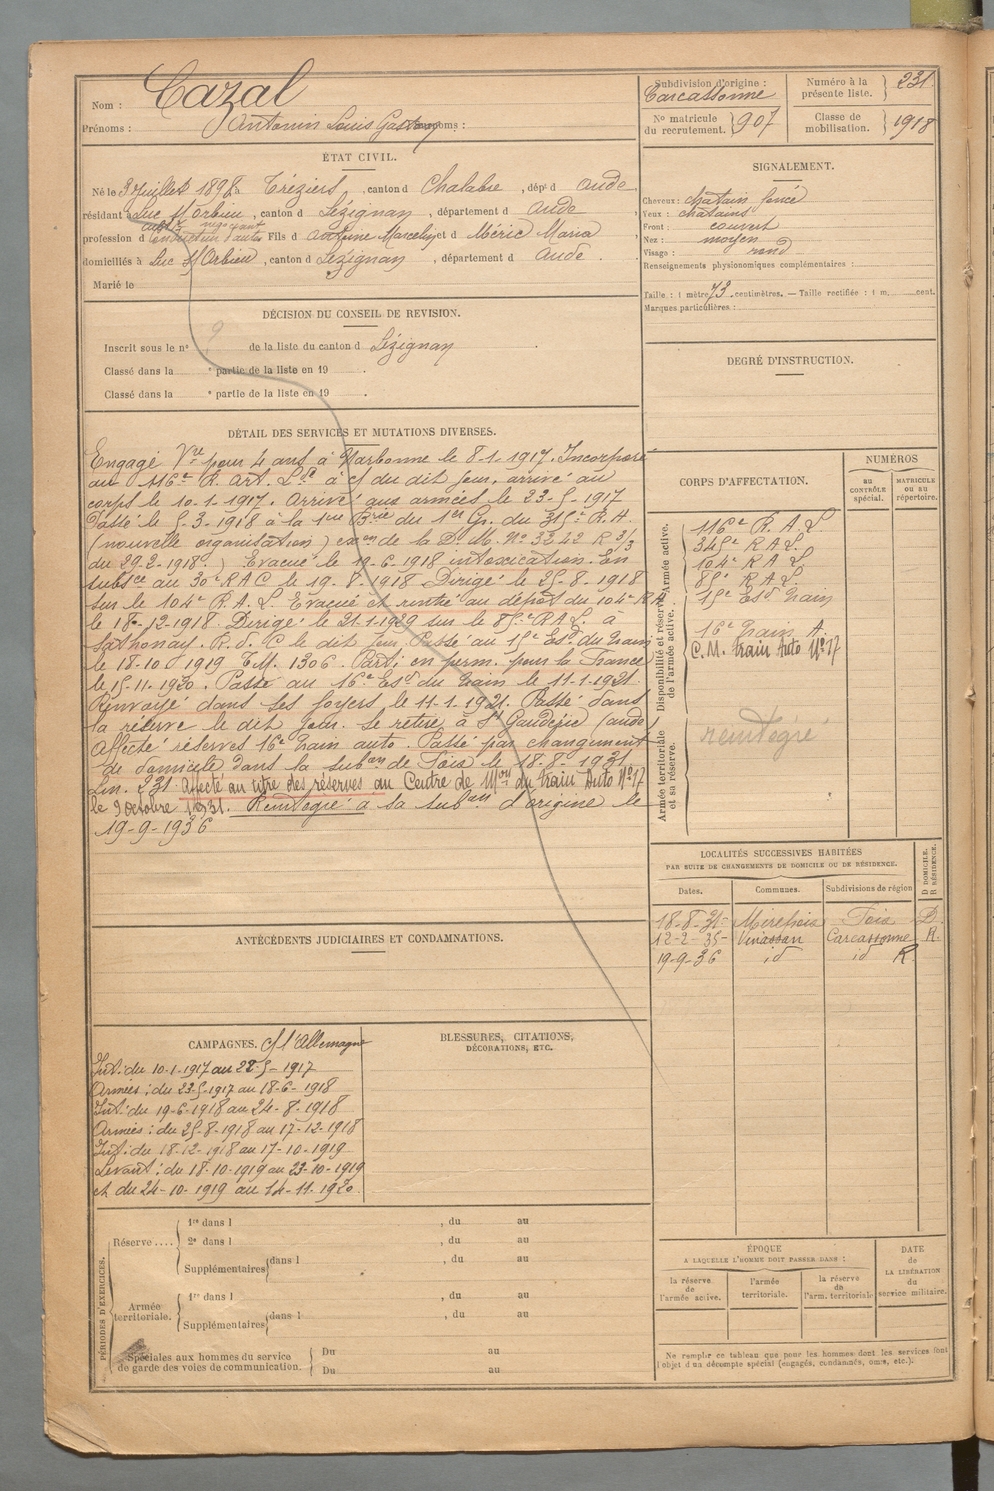 Nom : Cazal
Prénoms : Antonin Louis Gaston
Surnoms :
Subdivision d'origine : Carcassonne
Numéro à la présente liste. 231
N° matricule du recrutement. 907
Classe de mobilisation. 1918
ÉTAT CIVIL.
Né le 3 Juillet 1898 à Tréziers, canton d Chalabre, dép^t d Aude
résidant à Luc s/ Orbieu, canton d Lézignan, département d Aude
cult^r négociant
profession d Conducteur d'autos Fils d Antoine Marcelin et d Méric Maria
domiciliés à Luc s/ Orbieu, canton d Lézignan, département d Aude.
Marié le
SIGNALEMENT.
Cheveux : chatain foncé
Yeux : chatains
Front : couvert
Nez : moyen
Visage : rond
Renseignements physionomiques complémentaires :
Taille : 1 mètre 73 centimètres. — Taille rectifiée : 1 m. cent.
Marques particulières :
DÉCISION DU CONSEIL DE REVISION.
Inscrit sous le n° 9 de la liste du canton d Lézignan
Classé dans la ᵉ partie de la liste en 19 .
Classé dans la ᵉ partie de la liste en 19 .
DEGRÉ D'INSTRUCTION.
DÉTAIL DES SERVICES ET MUTATIONS DIVERSES.
Engagé V^re pour 4 ans à Narbonne le 8-1-1917. Incorporé
au 116^e R. Art. L^de à c/ du dit jour, arrivé au
corps le 10-1-1917. Arrivé aux armées le 23-5-1917
Passé le 5-3-1918 à la 1^ère B^rie du 1^er Gr. du 315^e R.A.
(nouvelle organisation) ex^on de la D. M. N° 3342 R 3/3
du 29-2-1918.) Evacué le 19-6-1918 intoxication. En
subs^ce au 30^e R A C le 19-8-1918 Dirigé le 25-8-1918
sur le 104^e R.A.L. Evacué et rentré au dépôt du 104^e R.A.
le 18-12-1918. Dirigé le 21-1-1929 sur le 85^e R.A.L. à
Sathonay. R.d.C le dit jour. Passé au 15^e Es^d du train
le 18-10-1919 T.M. 1306. Parti en perm. pour la France
le 15-11-1920. Passé au 16^e Es^d du train le 11-1-1921.
Renvoyé dans ses foyers le 11-1-1921. Passé dans
la réserve le dit jour. Se retire à S^t Gaudéric (Aude)
Affecté réserves 16^e train auto. Passé par changement
de domicile dans la sub^on de Foix le 18-8-1931
Lin. 231. Affecté au titre des réserves au Centre de M^on du train Auto N° 17
le 9 Octobre 1931. Réintégré à sa sub^on d'origine le
19-9-1936
CORPS D'AFFECTATION.
NUMÉROS
au CONTRÔLE spécial.
MATRICULE OU AU répertoire.
Armée active.
116^e R.A.L
345^e R A L.
104^e R A L
85^e R A L.
15^e Es^d train
Disponibilité et réserve de l'armée active.
16^e train A.
C.M. train Auto N° 17
Armée territoriale et sa réserve.
réintégré
LOCALITÉS SUCCESSIVES HABITÉES
PAR SUITE DE CHANGEMENTS DE DOMICILE OU DE RÉSIDENCE.
Dates. Communes. Subdivisions de région
D DOMICILE. R RÉSIDENCE.
18-8-31 Mirepoix Foix D.
12-2-35 Vinassan Carcassonne R.
19-9-36 id id R.
ANTÉCÉDENTS JUDICIAIRES ET CONDAMNATIONS.
CAMPAGNES. C/ l'Allemagne
Int : du 10-1-1917 au 22-5-1917
Armées : du 23-5-1917 au 18-6-1918
Int : du 19-6-1918 au 24-8-1918
Armées : du 25-8-1918 au 17-12-1918
Int : du 18-12-1918 au 17-10-1919
Levant : du 18-10-1919 au 23-10-1919
et du 24-10-1919 au 14-11-1920
BLESSURES, CITATIONS, DÉCORATIONS, ETC.
PÉRIODES D'EXERCICES.
Réserve....
1^re dans l , du au
2^e dans l , du au
Supplémentaires dans l , du au
Armée territoriale.
1^re dans l , du au
Supplémentaires dans l , du au
Spéciales aux hommes du service de garde des voies de communication.
Du au
Du au
ÉPOQUE
A LAQUELLE L'HOMME DOIT PASSER DANS :
la réserve de l'armée active.
l'armée territoriale.
la réserve de l'arm. territoriale
DATE de LA LIBÉRATION du service militaire.
Ne remplir ce tableau que pour les hommes dont les services font
l'objet d'un décompte spécial (engagés, condamnés, omis, etc.).